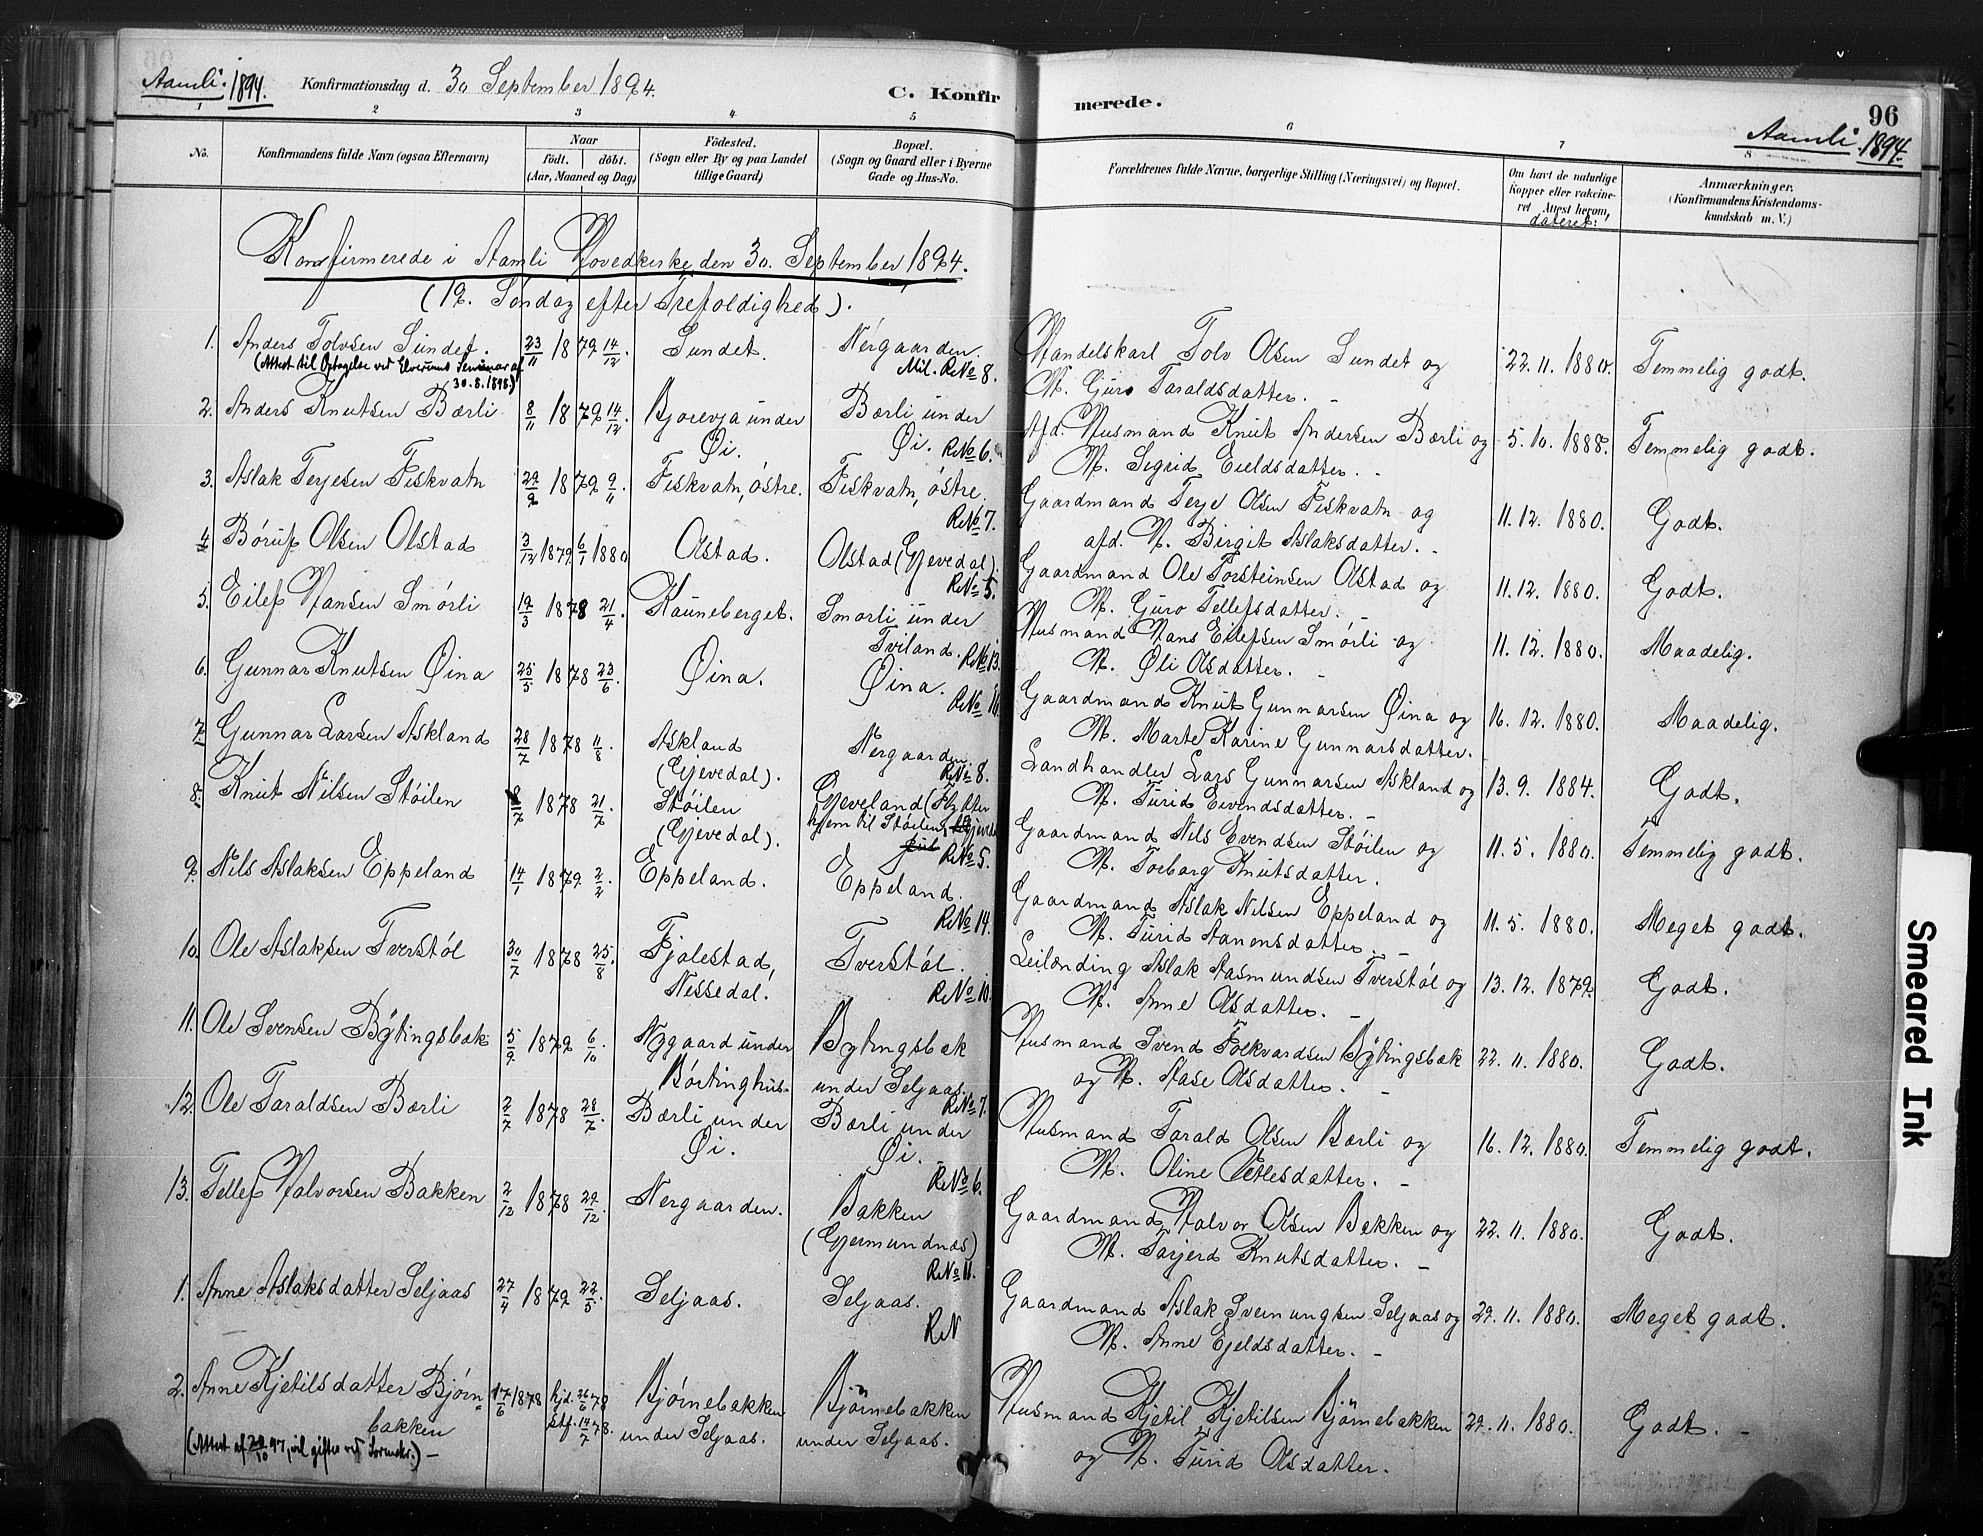 Aamli 1894. Konfirmationsdag d. 30 September 1894. C. Konfir merede. 96
Aamli 1894.
1 2 3 4 5 6 7 8
No. Konfirmandens fulde Navn (ogsaa Efternavn)
Naar
födt. döbt.
(Aar, Maaned og Dag)
Födested.
(Sogn eller By og paa Landet
tillige Gaard)
Bopæl.
(Sogn og Gaard eller i Byerne
Gade og Hus-No.
Forældrenes fulde Navne, borgerlige Stilling (Næringsvei) og Bopæl.
Om havt de naturlige
Kopper eller vakcine-
ret Attest herom,
dateret:
Anmærkninger.
(Konfirmandens Kristendoms-
kundskab m. V.)
Konfirmerede i Aamli Hovedkirke den 30. September 1894.
(19. Søndag efter Trefoldighed).
1. Anders Tolvsen Sundet. 23/11 1879 14/12. Sundet. Nergaarden. Handelskarl Tolv Olsen Sundet og 22. 11. 1880. Temmelig godt.
(Attest til Optagelse ved Elverums Seminar af 30.8.1898) Mil. R№ 8. M. Guro Taraldsdatter. -
2. Anders Knutsen Bærli 8/11 1879 14/12 Bjorevja under Bærli under Afd. Husmand Knut Andersen Bærli og 5. 10. 1888. Temmelig godt.
Øi. Øi. R№ 6. M. Sigrid Eieldsdatter. -
3. Aslak Terjesen Fiskvatn 29/9 1879 9/11. Fiskvatn, østre. Fiskvatn, østre. Gaardmand Terje Olsen Fiskvatn og 11. 12. 1880. Godt.
R№ 7. afd. M. Birgit Aslaksdatter. -
4. Børuf Olsen Olstad 3/12 1879 6/1 1880 Olstad. Olstad (Gjevedal). Gaardmand Ole Torsteinsen Olstad og 11. 12. 1880. Godt.
R№ 5. M. Guro Tellefsdatter. -
5. Eilef Hansen Smørli 19/3 1878 21/4 Hauneberget. Smørli under Husmand Hans Eilefsen Smørli og 11. 12. 1880. Maadelig.
Tviland. R№ 13. M. Øli Olsdatter. -
6. Gunnar Knutsen Øina 25/5 1878 23/6. Øina. Øina. Gaardmand Knut Gunnarsen Øina og 16. 12. 1880. Maadelig.
M. Marte Karine Gunnarsdatter.
7. Gunnar Larsen Askland 28/7 1878 11/8. Askland Nergaarden. Landhandler Lars Gunnarsen Askland og 13. 9. 1884. Godt.
(Gjevedal). R№ 8. M. Turid Eivendsdatter. -
8. Knut Nilsen Støilen 8/7 1878 21/7 Støilen Gjeveland (Flytter Gaardmand Nils Evendsen Støilen og 11. 5. 1880. Temmelig godt.
(Gjevedal). hjem til Støilen, R№ 5. M. Torborg Knutsdatter.
9. Nils Aslaksen Eppeland 14/1 1879. 2/4 Eppeland. Eppeland. Gaardmand Aslak Nilsen Eppeland og 11. 5. 1880. Meget godt.
R№ 14. M. Turid Aanonsdatter. -
10. Ole Aslaksen Tverstøl 30/7 1878 25/8. Fjolestad, Tverstøl. Leilænding Aslak Aasmundsen Tverstøl og 13. 12. 1879. Godt.
Nessedal. R№ 10. M. Anne Olsdatter. -
11. Ole Svensen Bytingsbak 5/9 1879 6/10 Nygaard under Bytingsbak Husmand Svend Folkvardsen Bytingsbak 22. 11. 1880. Godt.
Børtinghus. under Seljaas. R№ 7. og M. Aase Olsdatter. -
12. Ole Taraldsen Bærli 2/7 1878 28/7. Bærli under Bærli under Husmand Tarald Olsen Bærli og 16. 12. 1880. Temmelig godt.
Øi. Øi. R№ 6. M. Oline Vetlesdatter. -
13. Tellef Halvorsen Bakken 2/12 1878 29/12. Nergaarden. Bakken Gaardmand Halvor Olsen Bakken og 22. 11. 1880. Godt.
(Gjermundnæs) R№ 11. M. Tarjerd Knutsdatter. -
1. Anne Aslaksdatter Seljaas 27/4 1879 22/5 Seljaas. Seljaas. Gaardmand Aslak Sveinungsen Seljaas og 29. 11. 1880. Meget godt.
R№ M. Anne Ejeldsdatter. -
2. Anne Kjetilsdatter Bjørn- 17/6 1878 hjd. 26/6 78 Bjørnebakken Bjørnebakken Husmand Kjetil Kjetilsen Bjørnebakken 29. 11. 1880. Godt. -
bakken stf. 14/7 78. under Seljaas. under Seljaas. og M. Turid Olsdatter.
(Attest af 29/10 97, vil giftes ved Sørum) -
Smeared Ink